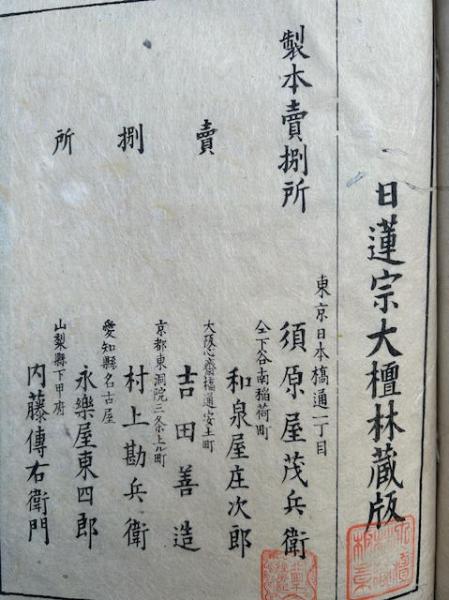 日蓮宗大檀林蔵版
製本賣捌所
東京日本橋通一丁目
須原屋茂兵衛
仝下谷南稲荷町
和泉屋庄次郎
賣捌所
大阪心齋橋通安土町
吉田善造
京都東洞院三条上ル町
村上勘兵衛
愛知縣名古屋
永樂屋東四郎
山梨縣下甲府
内藤傳右衛門